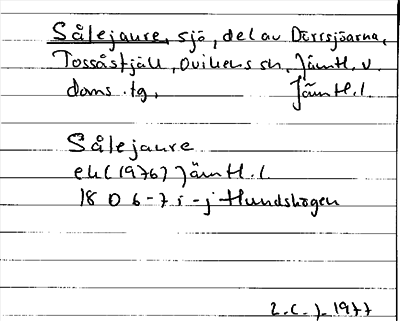 Sålejaure, sjö, del av Dörrsjöarna,
Tossåsfjäll, Ovikens sn, Jämtl. v.
doms.tg, Jämtl.l.
Sålejaure
ek (1976) Jämtl.l.
18 D 6-7 i-j Hundshögen
1977